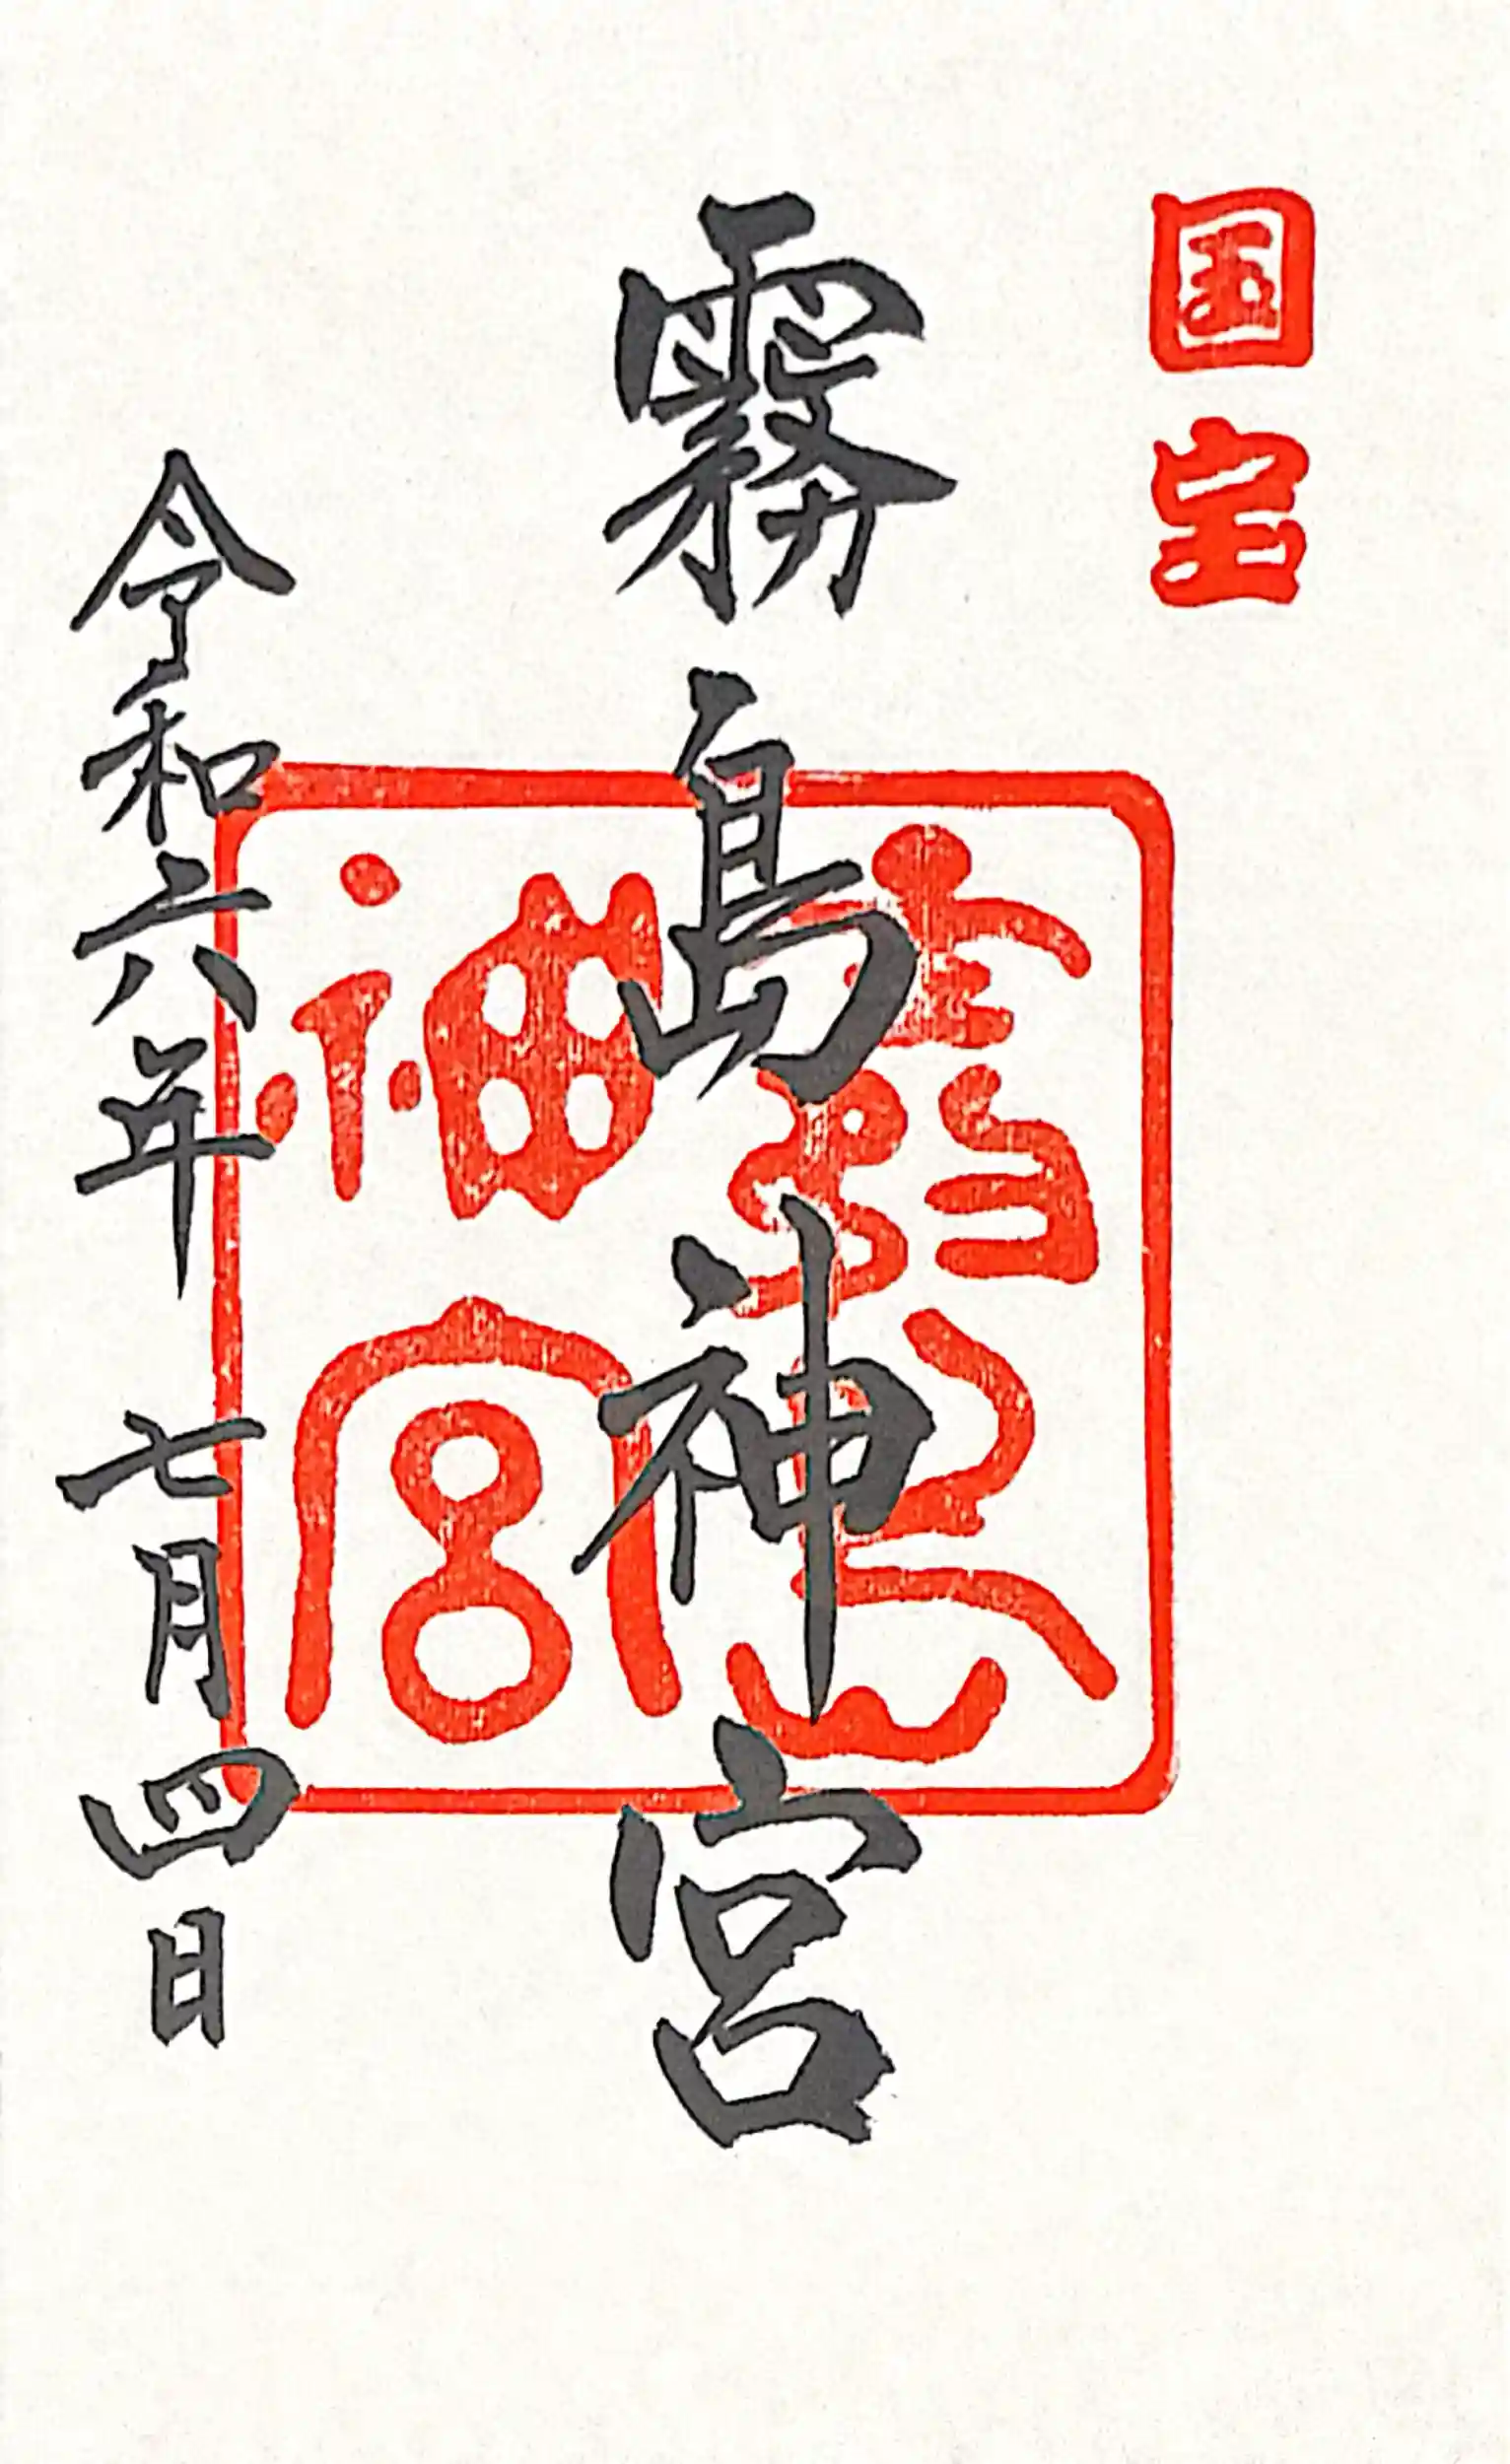 国宝
霧島神宮
霧島
神宮
令和六年 七月四日